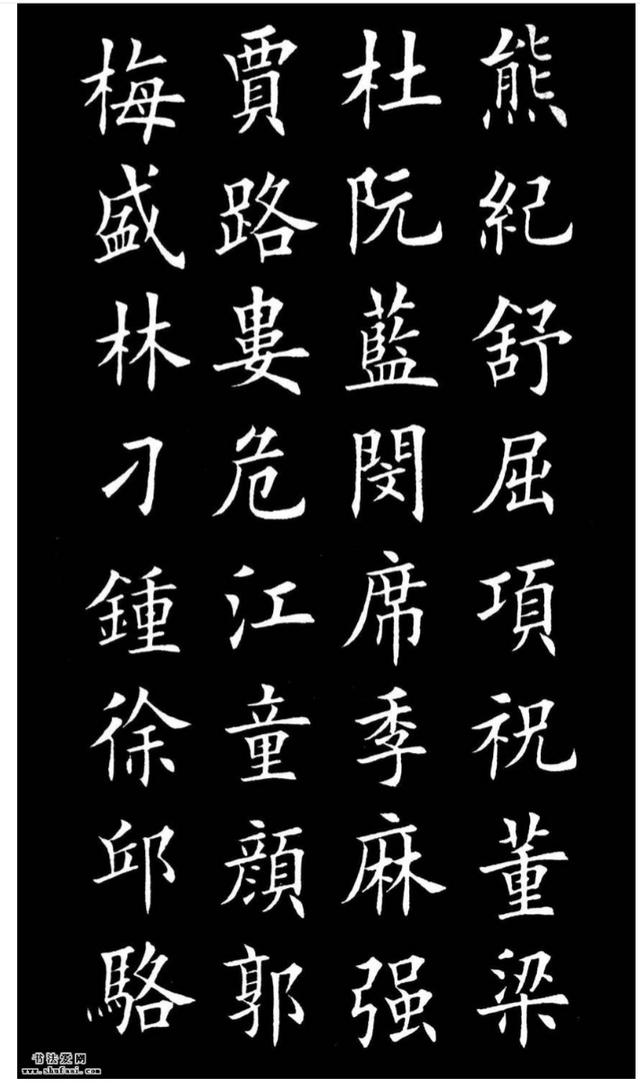 熊紀舒屈項祝董梁
杜阮藍閔席季麻强
賈路婁危江童顔郭
梅盛林刁鍾徐邱駱
书法爱网
www.shufaai.com